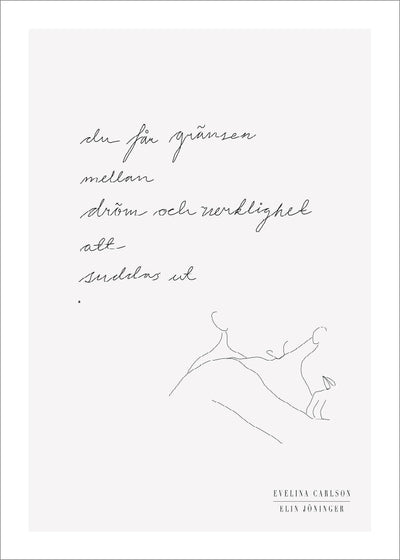 du får gränsen
mellan
dröm och verklighet
att
suddas ut
.
EVELINA CARLSON
ELIN JÖNINGER